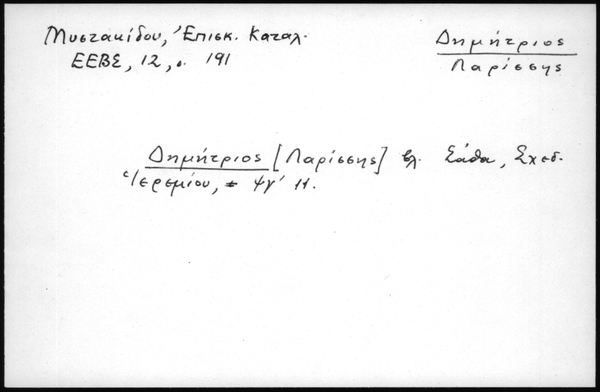 Μυστακίδου, Ἐπισκ. Καταλ.
ΕΕΒΣ, 12, σ. 191
Δημήτριος
Λαρίσσης
Δημήτριος [Λαρίσσης] βλ. Σάθα, Σχεδ.
Ἱερεμίου, ψγ'